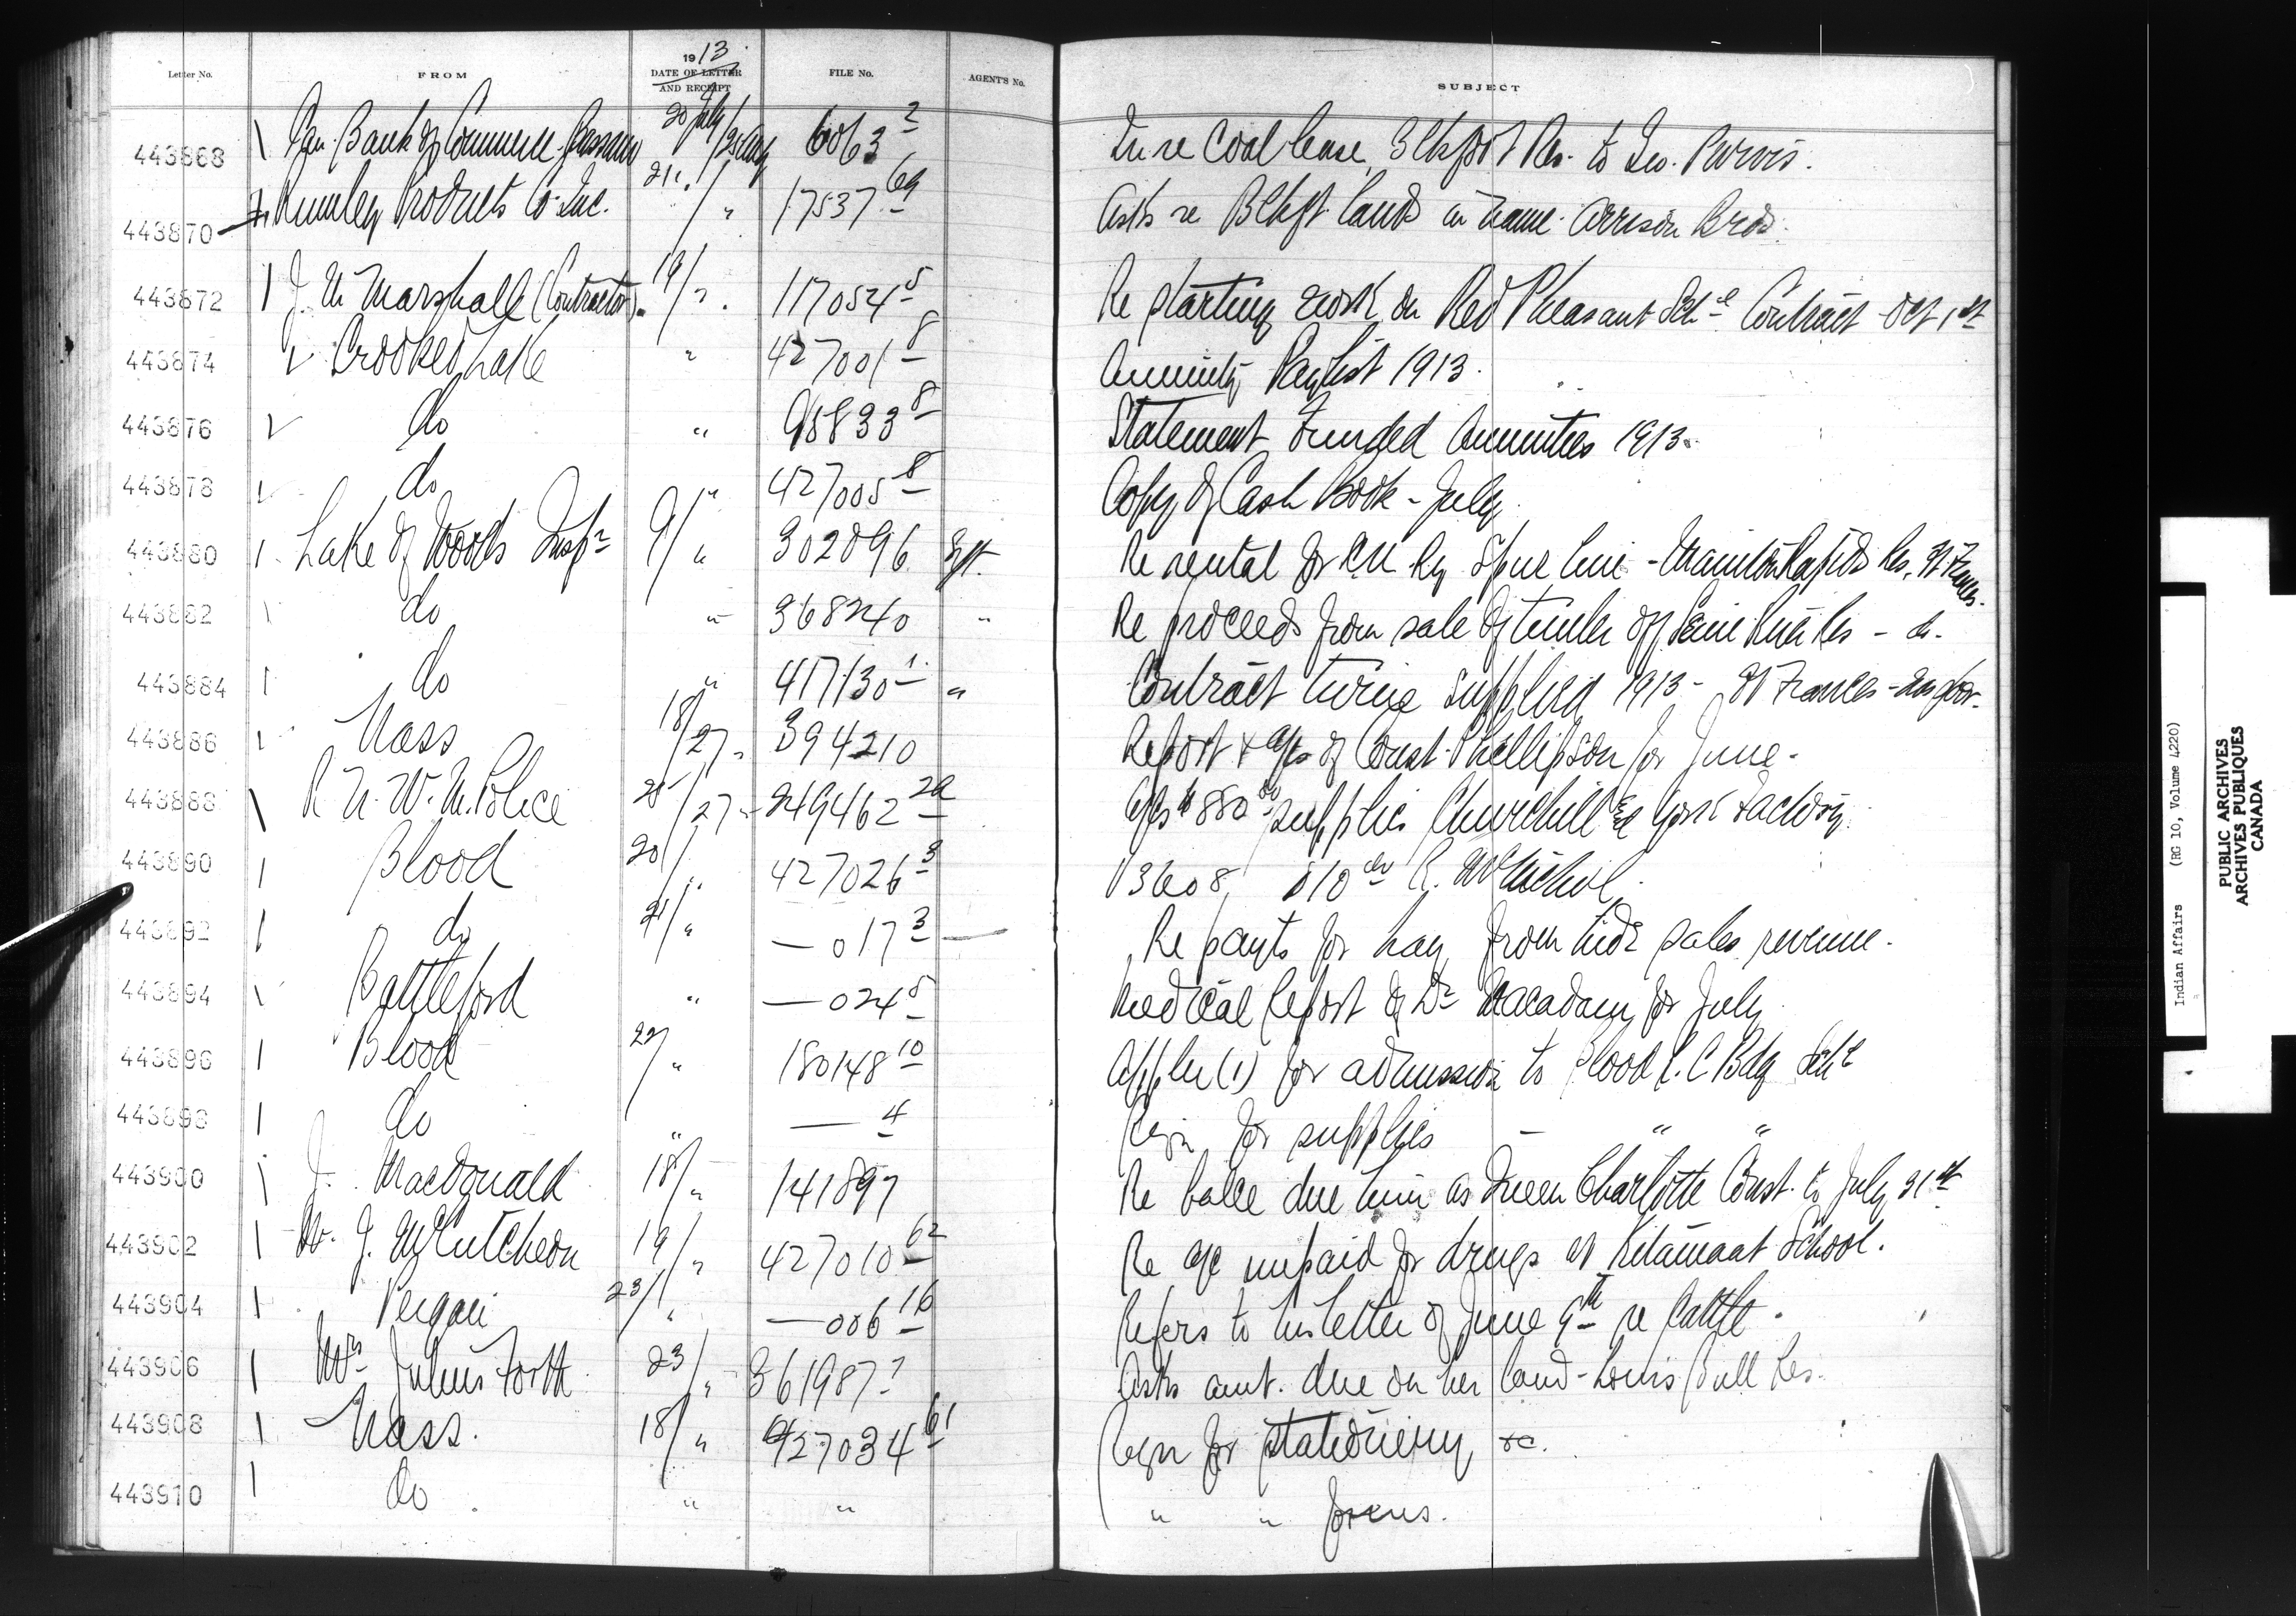 1913
Letter No. FROM DATE OF LETTER AND RECEIPT FILE No. AGENT'S No. SUBJECT
443868 Can. Bank of Commerce 20 July 6063 2 In re Coal lease Blkfoot Res. to Geo. Purvis.
443870 Rumley Products Co. Inc. 21 " 17537 69 Asks re Blkft lands in name Arrison Bros.
443872 J. W. Marshall (Contractor) 19/" 117054 5 Re starting work on Red Pheasant Schl Contract Oct 1st
443874 Crooked Lake " 427001 8 Annuity Paylist 1913.
443876 do " 95833 8 Statement Funded Annuities 1913.
443878 do " 427005 8 Copy of Cash Book - July
443880 Lake of Woods Inspr 9/" 302096 Re rental for C.N. Ry Spur line - Manitou Rapids Res. Ft Frances.
443882 do " 368240 " Re proceeds from sale of timber off Seine River Res - do.
443884 do " 417130 1 " Contract twine supplied 1913 - Ft Frances
443886 Nass 18/27 394210 Report & a/cs of Const. Phillipson for June -
443888 R.N.W.M. Police 25/27 249462 2a a/cs $880 supplies Churchill & York Factory.
443890 Blood 20/" 427026 3 13608, $10 R. McNichol.
443892 do 21/" — 017 3 Re payts for hay from hide sales revenue.
443894 Battleford " — 024 5 Medical Report of Dr Macadam for July
443896 Blood 22/" 180148 10 Appln (1) for admission to Blood R.C. Bdg Schl
443898 do " — 4 Reqn for supplies — " "
443900 J. MacDonald 18/" 141897 Re balce due him as Queen Charlotte Const. to July 31st
443902 W. J. McCutcheon 19/" 427010 62 Re a/c unpaid for drugs at Kitamaat School.
443904 Peigan 23/" — 006 16 Refers to his letter of June 9th re Cattle.
443906 Mrs Julius Forth 23/" 361987 Asks amt. due on her land - Louis Bull Res.
443908 Nass. 18/" 427034 61 Reqn for stationery &c.
443910 do " " " " forms.
Indian Affairs (RG 10, Volume 4220)
PUBLIC ARCHIVES
ARCHIVES PUBLIQUES
CANADA